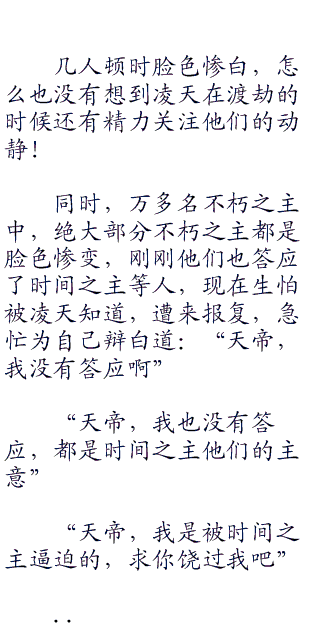 几人顿时脸色惨白，怎
么也没有想到凌天在渡劫的
时候还有精力关注他们的动
静！
同时，万多名不朽之主
中，绝大部分不朽之主都是
脸色惨变，刚刚他们也答应
了时间之主等人，现在生怕
被凌天知道，遭来报复，急
忙为自己辩白道：“天帝，
我没有答应啊”
“天帝，我也没有答
应，都是时间之主他们的主
意”
“天帝，我是被时间之
主逼迫的，求你饶过我吧”
..